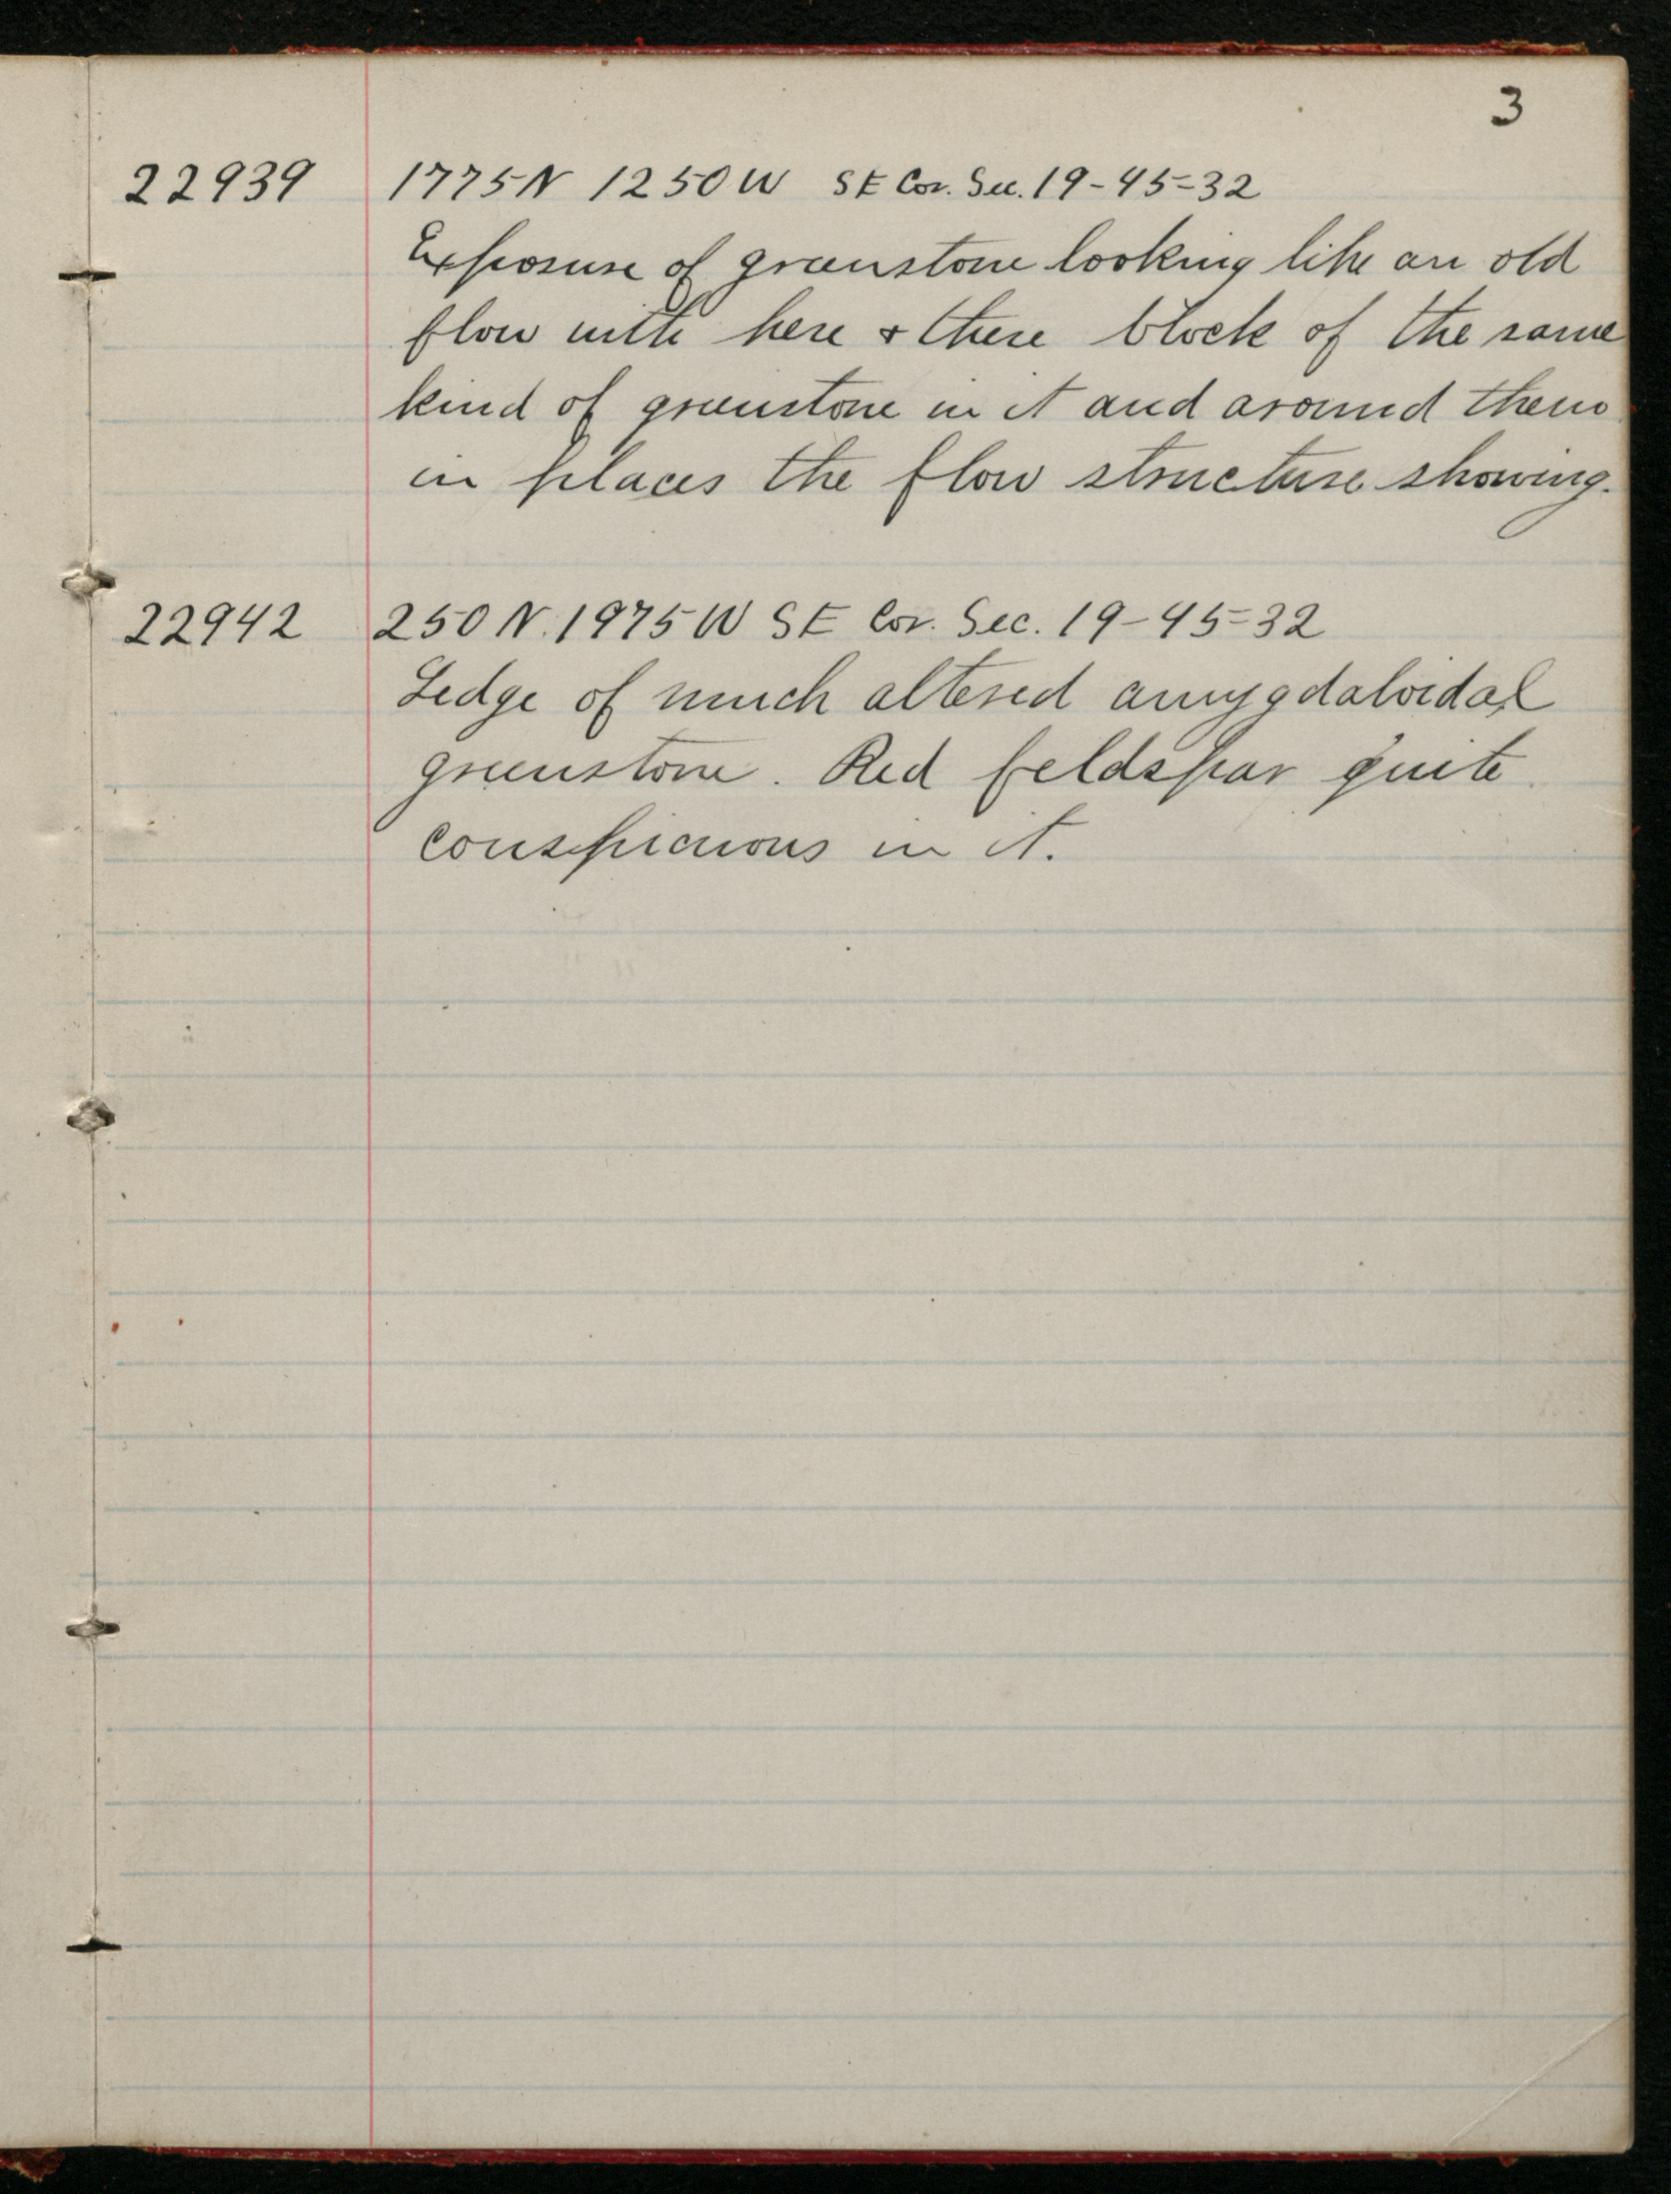 3
22939 1775 N 1250 W SE Cor. Sec. 19-45-32
Exposure of greenstone looking like an old
flow with here & there block of the same
kind of greenstone in it and around them
in places the flow structure showing.
22942 250 N. 1975 W SE Cor. Sec. 19-45-32
Ledge of much altered amygdaloidal
greenstone. Red feldspar quite
conspicuous in it.